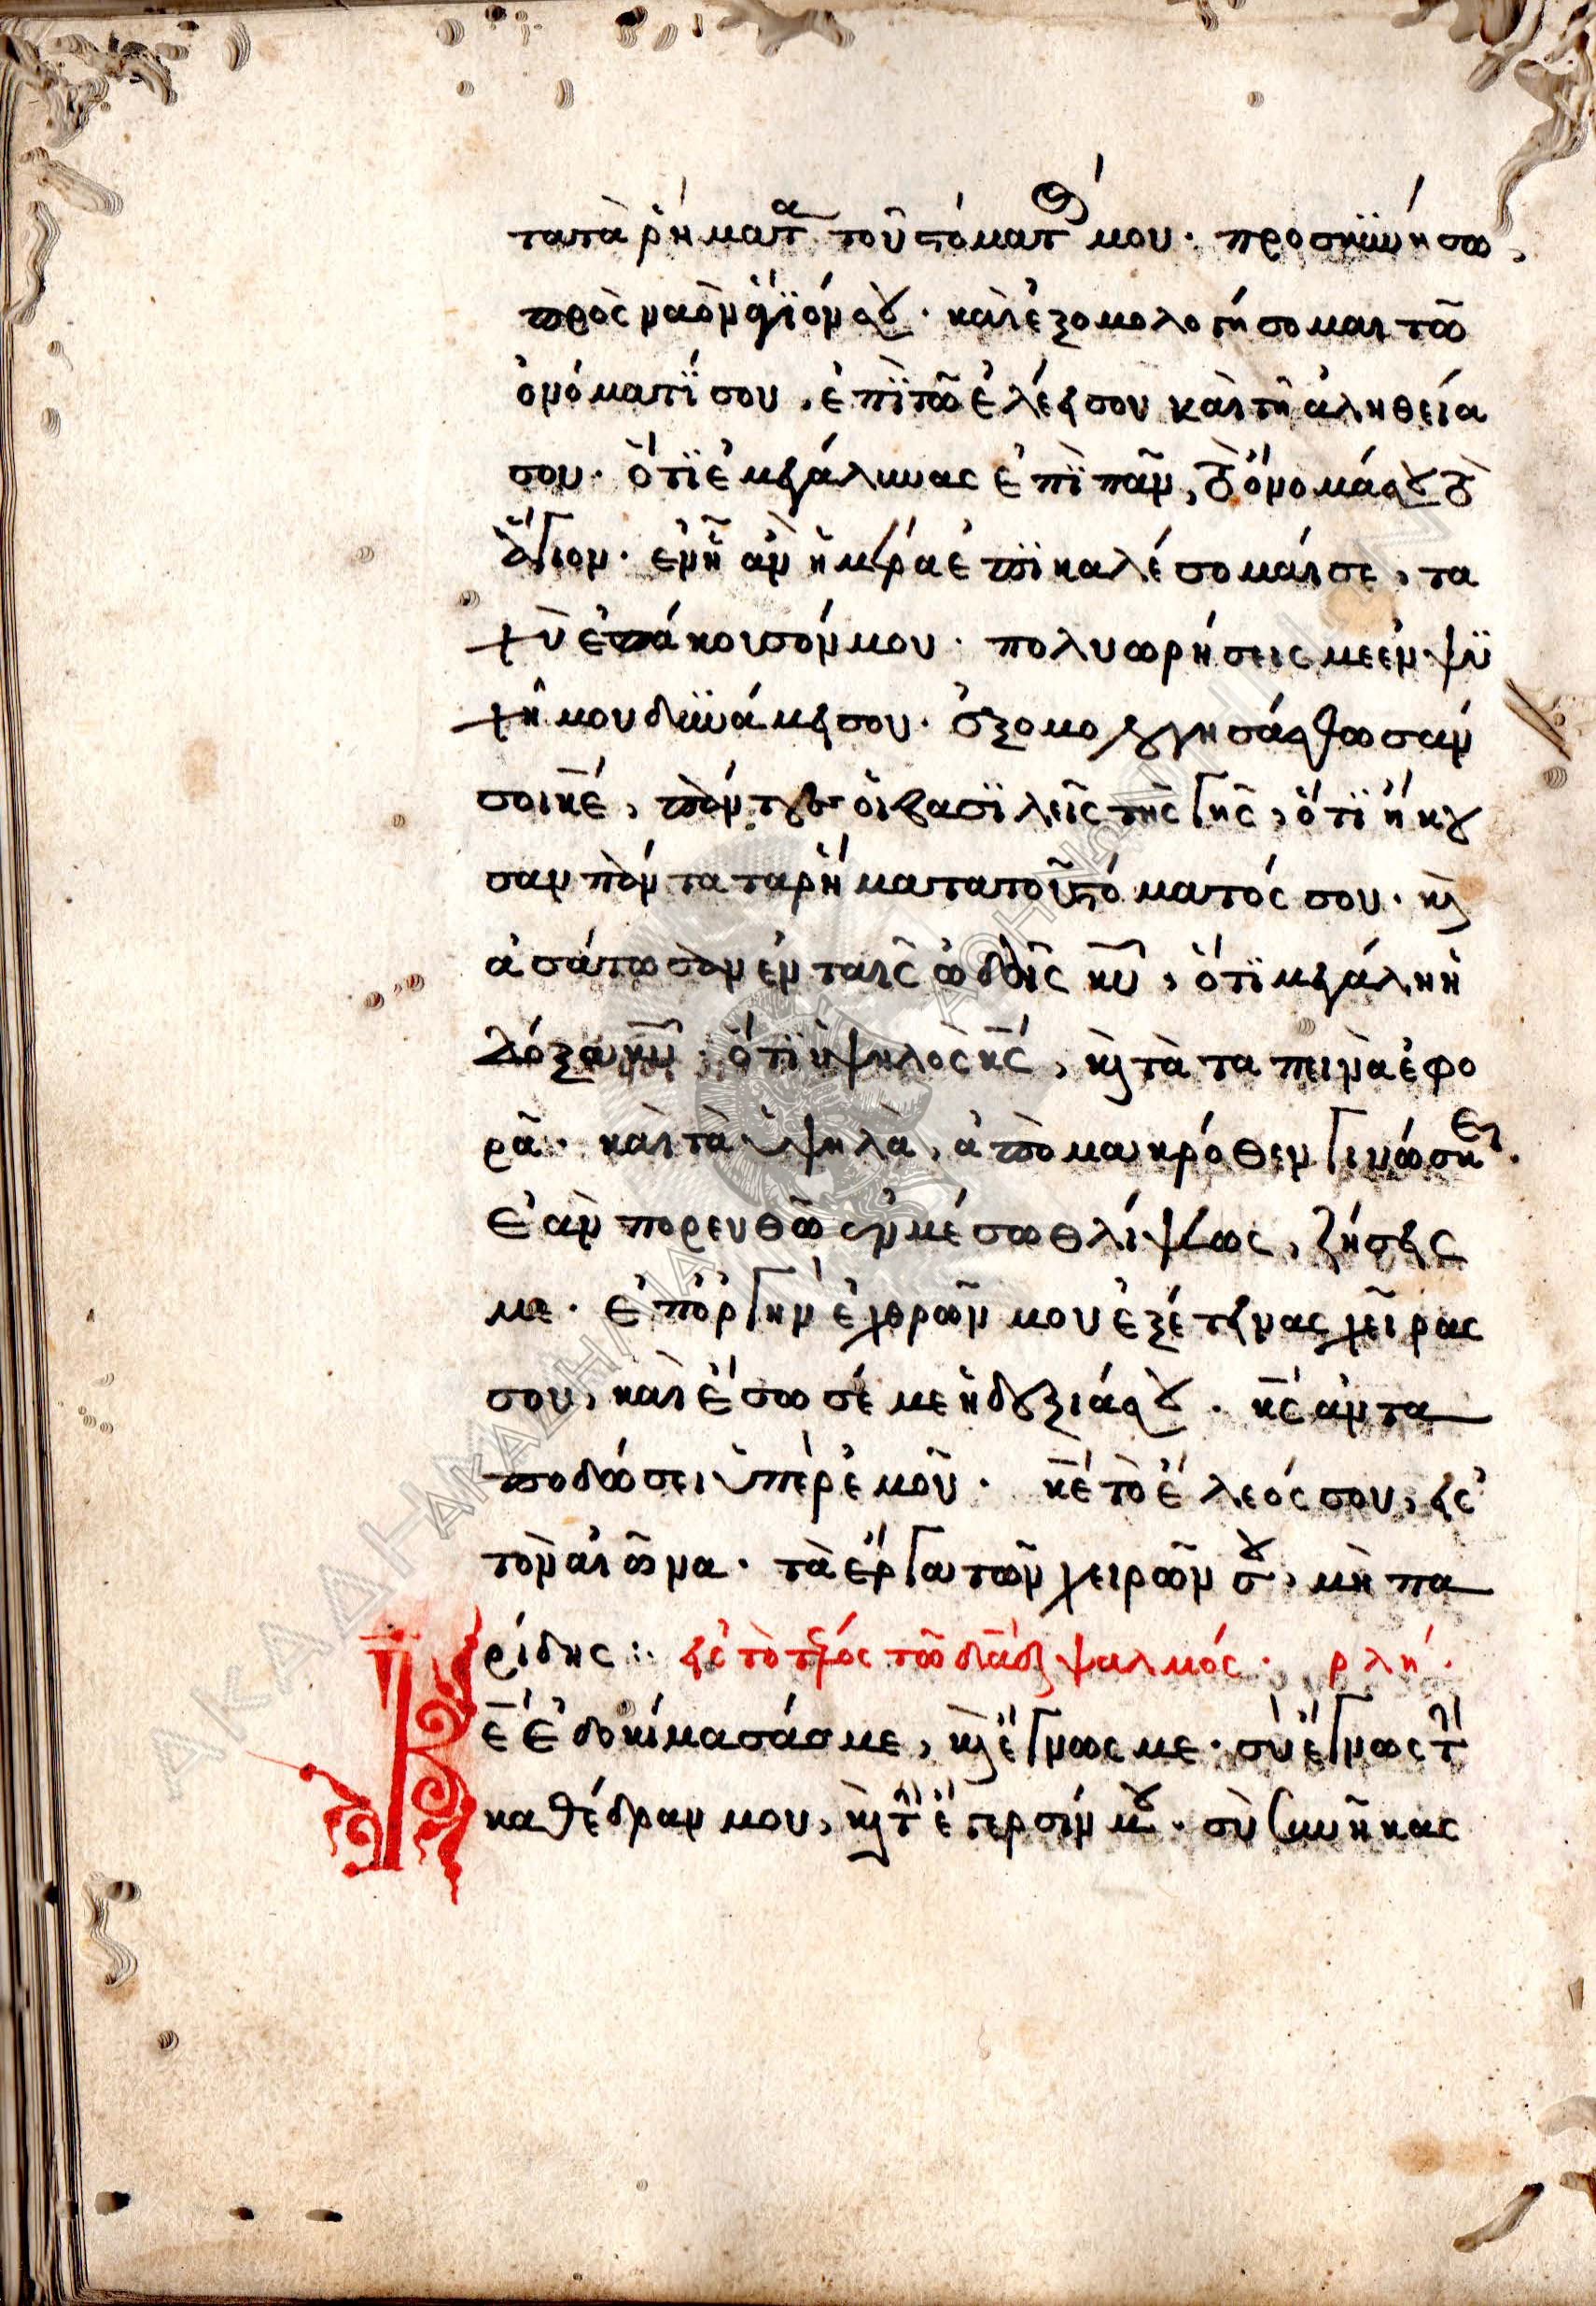 τα τὰ ῥήματα τοῦ στόματός μου· προσκυνήσω,
πρὸς ναὸν ἅγϊόν σου· καὶ ἐξομολογήσομαι τῶ
ὀνόματΐ σου, ἐπῒ τῶ ἐλέει σου καὶ τῆ ἀληθεία
σου· ὅτϊ ἐμεγάλυνας ἐπῒ πᾶν, τὸ ὄνομά σου τὸ
ἅγιον· ἐν ἧ ἂν ἡμέρα ἐπϊκαλέσομαί σε, τα
χὺ ἐπάκουσόν μου· πολυωρήσεις με ἐν ψϋ
χῆ μου δυνάμει σου· ἐξομολογησάσθωσάν
σοι κε, πάντες οἱ βασϊλεῖς τῆς γῆς, ὅτϊ ἤκου
σαν πάντα τα ῥήματα τοῦ στόματός σου· καὶ
ἀσάτωσαν ἐν ταῖς ὠδαῖς κυ, ὅτϊ μεγάλη ἡ
δόξα κυ· ὅτϊ ὑψηλὸς κς, καὶ τὰ ταπεινὰ ἐφο
ρᾶ· καὶ τὰ ὑψηλὰ, ἀπὸ μακρόθεν γινώσκει.
Ἐὰν πορευθῶ ἐν μέσω θλίψεως, ζήσεις
με· ἐπ' ὀργὴν ἐχθρῶν μου ἐξέτεινας χεῖρας
σου, καὶ ἔσωσέ με ἡ δεξιά σου. κς ἀντα
ποδώσει ὑπὲρ ἐμοῦ· κε τὸ ἔλεός σου, εἰς
τὸν αἰῶνα· τὰ ἔργα τῶν χειρῶν σου, μὴ πα
ρίδης :· εἰς τὸ τέλος τῶ δᾱδ ψαλμός· ρλή.
Κε ἐδοκίμασάς με, καὶ ἔγνως με· σὺ ἔγνως τὴν
καθέδραν μου, καὶ τὴν ἔγερσίν μου· σὺ συνῆκας
ΑΚΑΔΗΜΙΑ ΑΘΗΝΩΝ